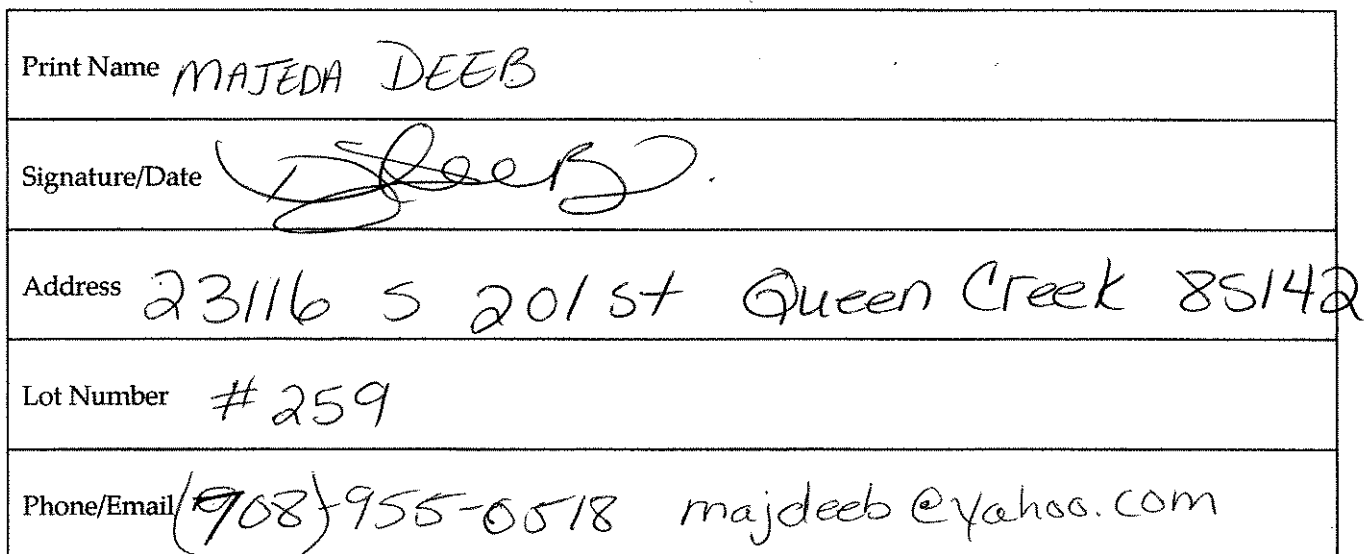 Print Name MAJEDA DEEB
Signature/Date DeeB
Address 23116 S 201 St Queen Creek 85142
Lot Number #259
Phone/Email (908)-955-0518 majdeeb@yahoo.com